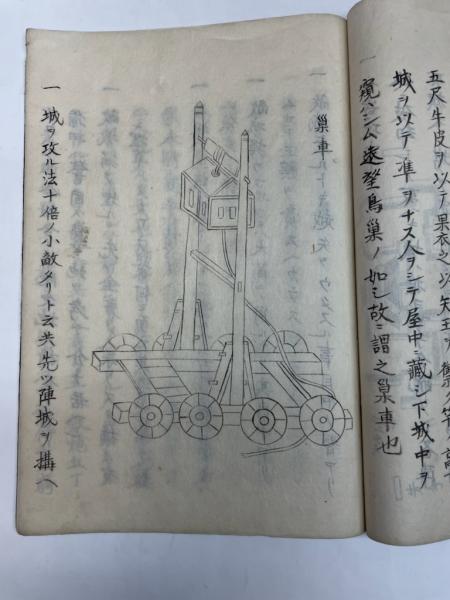 五尺牛皮ヲ以テ裹衣之以矢玉ヲ
城ヲ以テ準ヲナス人ヲシテ屋中ニ藏シ下城中ヲ
窺ハシム遠望鳥巢ノ如シ故ニ謂之巢車也
巢車
一 城ヲ攻ル法十倍ノ小敵タリト云共先ツ陣城ヲ搆ヘ